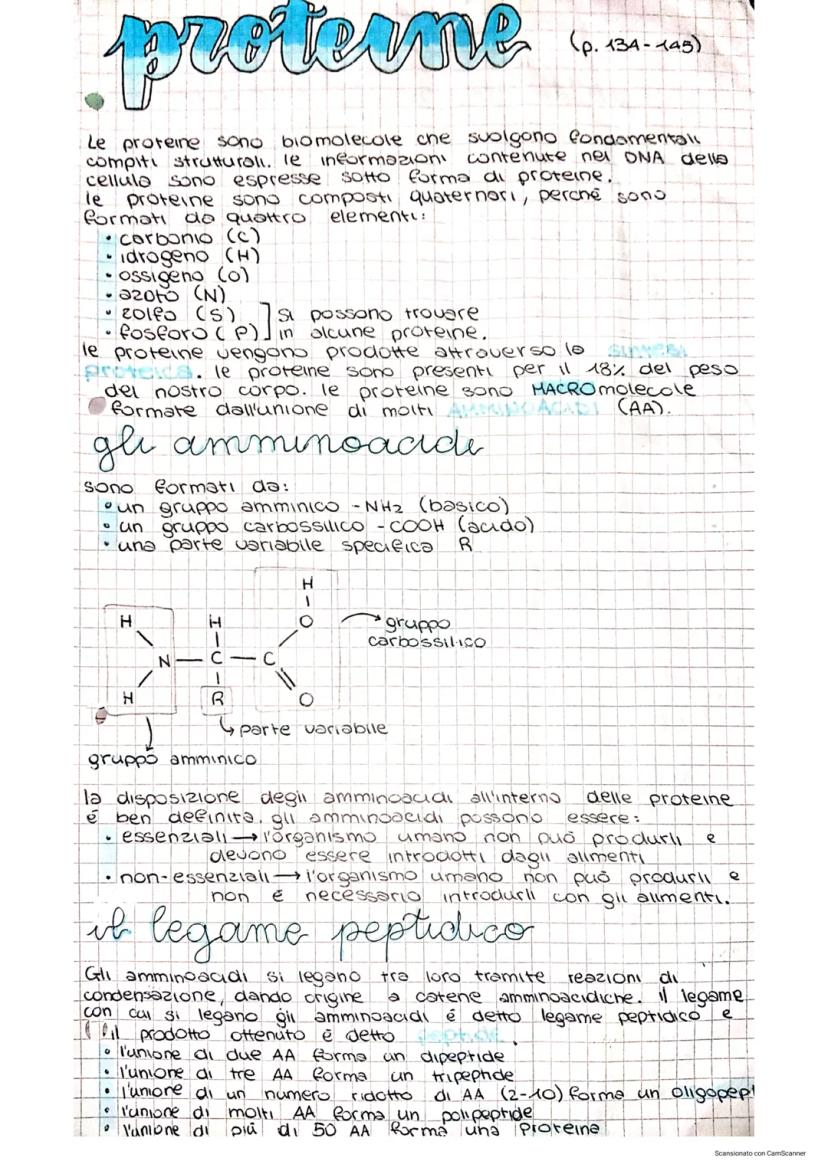 proteine (p. 134-145)
Le proteine sono biomolecole che svolgono fondamentali
compiti strutturali. le informazioni contenute nel DNA della
cellula sono espresse sotto forma di proteine.
le proteine sono composti quaternari, perché sono
formati da quattro elementi:
• carbonio (C)
• idrogeno (H)
• ossigeno (O)
• azoto (N)
• zolfo (S) ] si possono trovare
• fosforo (P) ] in alcune proteine.
le proteine vengono prodotte attraverso la sintesi
proteica. le proteine sono presenti per il 18% del peso
del nostro corpo. le proteine sono MACROmolecole
formate dall'unione di molti AMMINOACIDI (AA).
gli amminoacidi
sono formati da:
• un gruppo amminico -NH2 (basico)
• un gruppo carbossilico -COOH (acido)
• una parte variabile specifica R
H
H H O → gruppo
carbossilico
N — C — C
H R O
↳ parte variabile
gruppo amminico
la disposizione degli amminoacidi all'interno delle proteine
é ben definita. gli amminoacidi possono essere:
• essenziali → l'organismo umano non può produrli e
devono essere introdotti dagli alimenti
• non-essenziali → l'organismo umano non può produrli e
non é necessario introdurli con gli alimenti.
il legame peptidico
Gli amminoacidi si legano tra loro tramite reazioni di
condensazione, dando origine a catene amminoacidiche. il legame
con cui si legano gli amminoacidi é detto legame peptidico e
il prodotto ottenuto é detto peptide.
• l'unione di due AA forma un dipeptide
• l'unione di tre AA forma un tripeptide
• l'unione di un numero ridotto di AA (2-10) forma un oligopep
• l'unione di molti AA forma un polipeptide
• l'unione di più di 50 AA forma una proteina
Scansionato con CamScanner